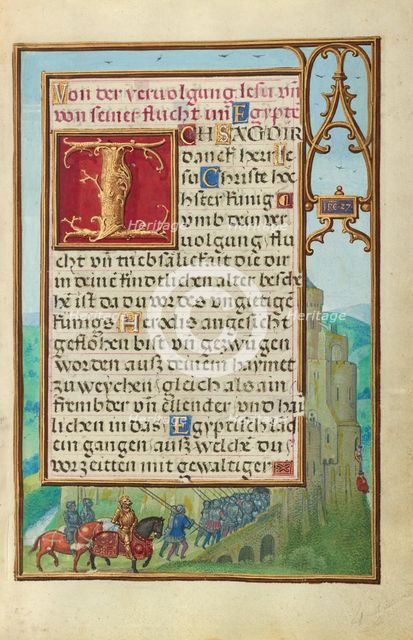 Von der vervolgung Iesu vn̄
von seiner flucht in Egypte
ICH SAG DIR
danck herr Ie
su Christe ho
hster kunig
vmb dein ver
volgung flu
cht vn̄ trubsalickeit die dir
in deinē kindtlichen alter besche
hē ist da du vor des vngietigē
kunigs Herodis angesicht
geflohen bist vn̄ gezwūgen
worden ausz deinem haymet
zu weychen gleich als ain
frembder vn̄ elender vnd hai
lichen in das Egyptisch lād
ein gangen ausz welchē du
vor zeitten mit gewaltiger
Heritage
Heritage
Heritage
Heritage